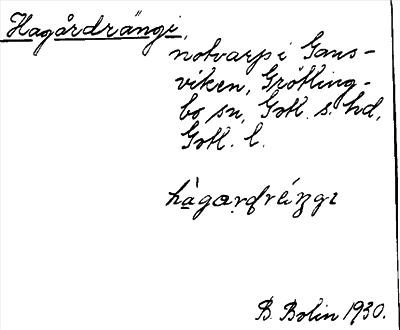 Hagårdrängi,
notvarp i Gans-
viken, Grötling-
bo sn, Gotl. s. hd,
Gotl. l.
B. Bolin 1930.